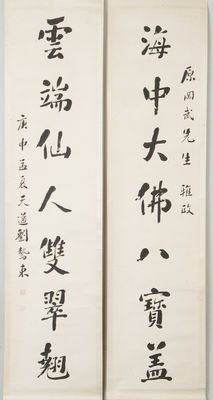 原岡武先生雅政
海中大佛八寶蓋
雲端仙人雙翠翹
庚申孟夏天遥劉驁東